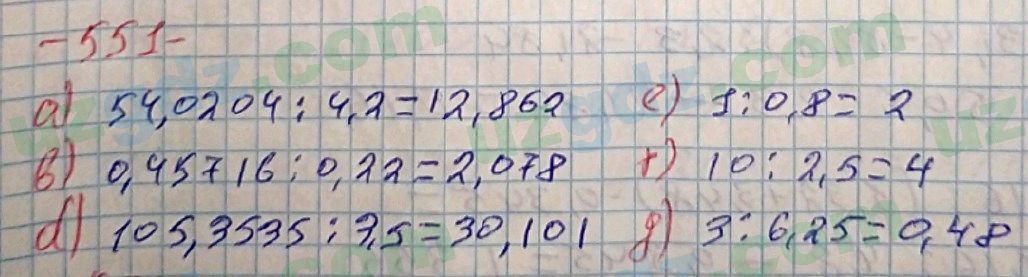 -551-
a) 54,0204 : 4,2 = 12,862 e) 1 : 0,8 = 2
b) 0,45716 : 0,22 = 2,078 f) 10 : 2,5 = 4
d) 105,3535 : 3,5 = 30,101 g) 3 : 6,25 = 0,48